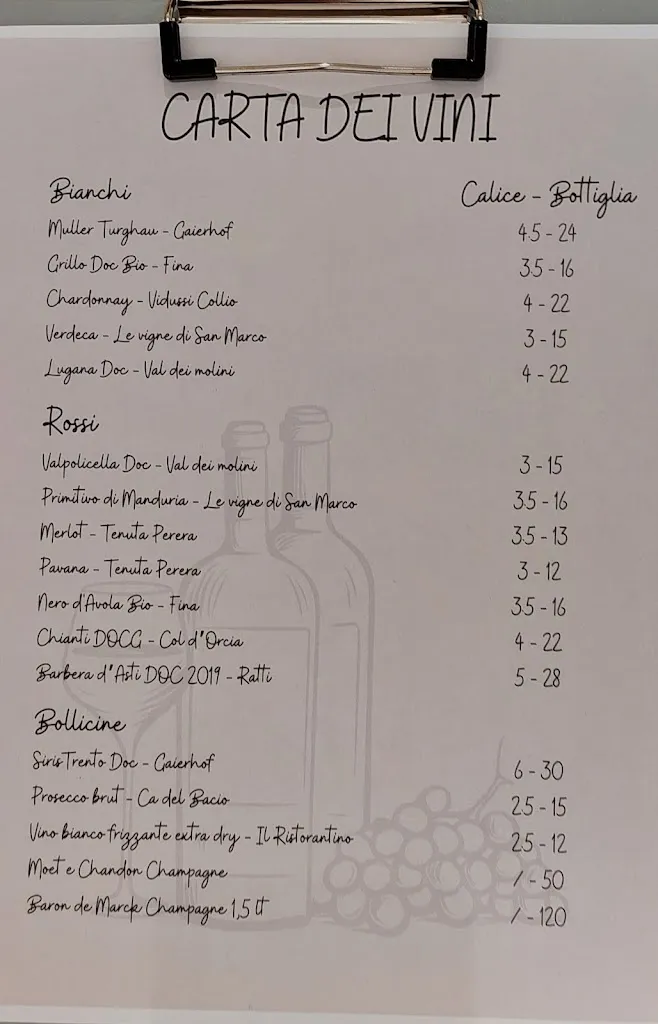 CARTA DEI VINI
Bianchi Calice - Bottiglia
Muller Turghau - Gaierhof 4.5 - 24
Grillo Doc Bio - Fina 3.5 - 16
Chardonnay - Vidussi Collio 4 - 22
Verdeca - Le vigne di San Marco 3 - 15
Lugana Doc - Val dei molini 4 - 22
Rossi
Valpolicella Doc - Val dei molini 3 - 15
Primitivo di Manduria - Le vigne di San Marco 3.5 - 16
Merlot - Tenuta Perera 3.5 - 13
Pavana - Tenuta Perera 3 - 12
Nero d'Avola Bio - Fina 3.5 - 16
Chianti DOCG - Col d'Orcia 4 - 22
Barbera d'Asti DOC 2019 - Ratti 5 - 28
Bollicine
Siris Trento Doc - Gaierhof 6 - 30
Prosecco brut - Ca del Bacio 2.5 - 15
Vino bianco frizzante extra dry - Il Ristorantino 2.5 - 12
Moet e Chandon Champagne / - 50
Baron de Marck Champagne 1,5 LT / - 120